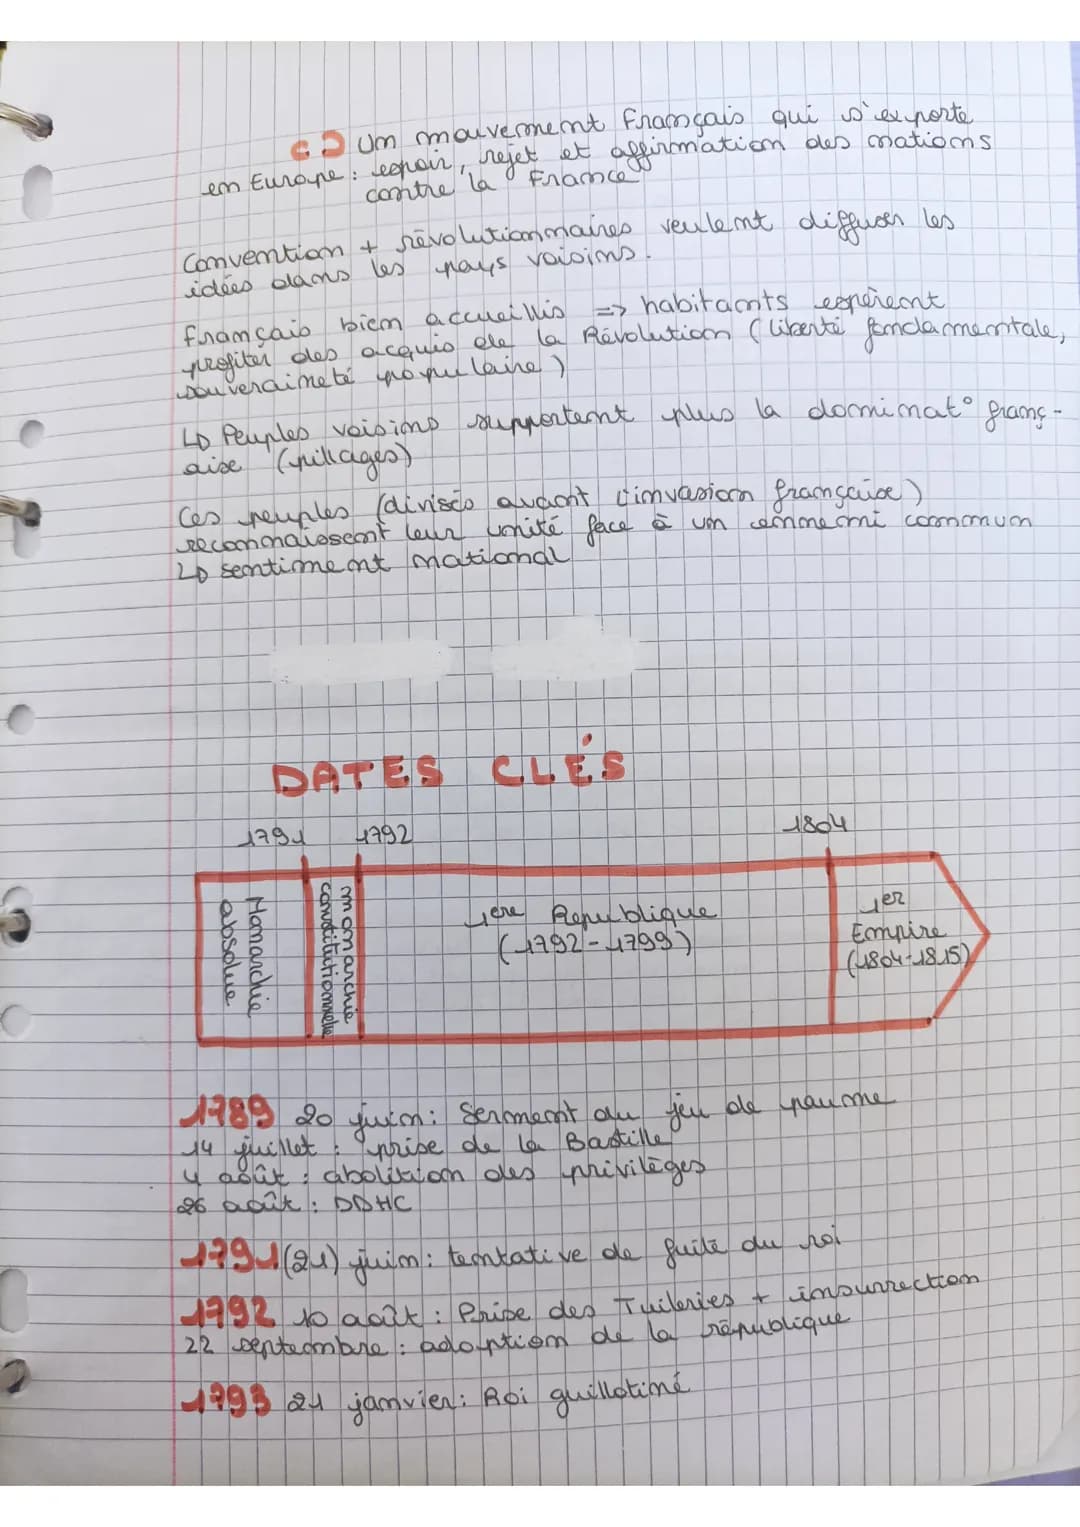 C.) Un mouvement français qui s'exporte
en Europe : espoir, rejet et affirmation des nations
contre la France
Convention + révolutionnaires veulent diffuser les
idées dans les pays voisins.
français bien accueillis => habitants espèrent
profiter des acquis de la Révolution (liberté fondamentale,
souveraineté populaire)
↳ Peuples voisins supportent plus la dominat° franç-
aise (pillages)
Ces peuples (divisés avant l'invasion française)
reconnaissent leur unité face à un ennemi commun
↳ sentiment national
DATES CLÉS
1791 1792 1804
Monarchie
absolue
monarchie
constitutionnelle
1ere Republique
(1792-1799)
1er
Empire
(1804-1815)
1789 20 juin : Serment du jeu de paume
14 juillet : prise de la Bastille
4 août : abolition des privilèges
26 août : DDHC
1791 (21) juin : tentative de fuite du roi
1792 10 août : Prise des Tuileries + insurrection
22 septembre : adoption de la république
1793 21 janvier : Roi guillotiné